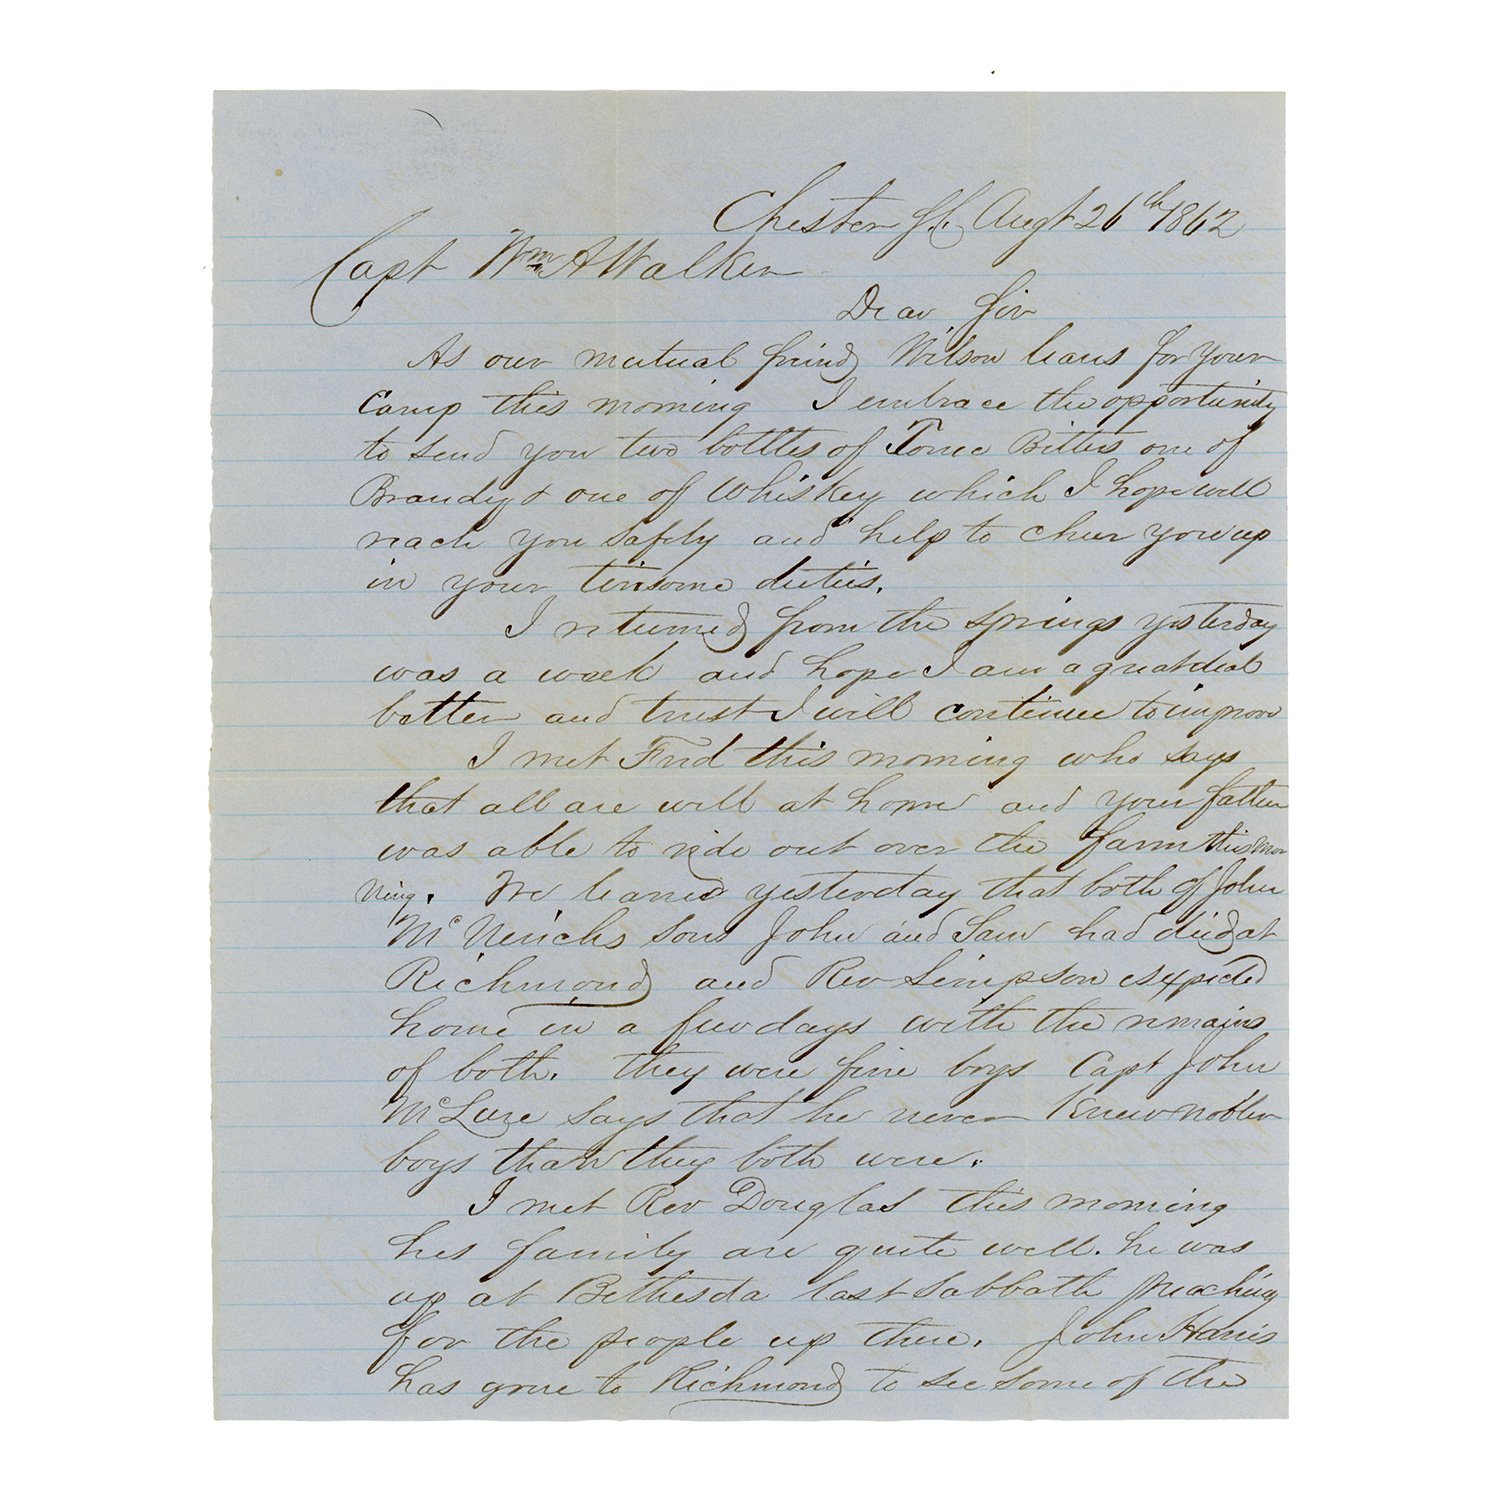 Chester SC, Augt 26th 1862
Capt Wm A Walker
Dear Sir
As our mutual friend Wilson leaves for your
Camp this morning I embrace the opportunity
to send you two bottles of Tonic Bitters one of
Brandy & one of Whiskey which I hope will
reach you safely and help to cheer you up
in your tiresome duties.
I returned from the springs yesterday
was a week and hope I am a great deal
better and trust I will continue to improve
I met Fred this morning who says
that all are well at home and your father
was able to ride out over the farm this mor
ning. We learned yesterday that both of John
McNinchs sons John and Sam had died at
Richmond and Rev Simpson expected
home in a few days with the remains
of both. they were fine boys Capt John
McLure says that he never knew nobler
boys than they both were.
I met Rev Douglas this morning
his family are quite well. he was
up at Bethesda last Sabbath preaching
for the people up there. John Harris
has gone to Richmond to see some of the